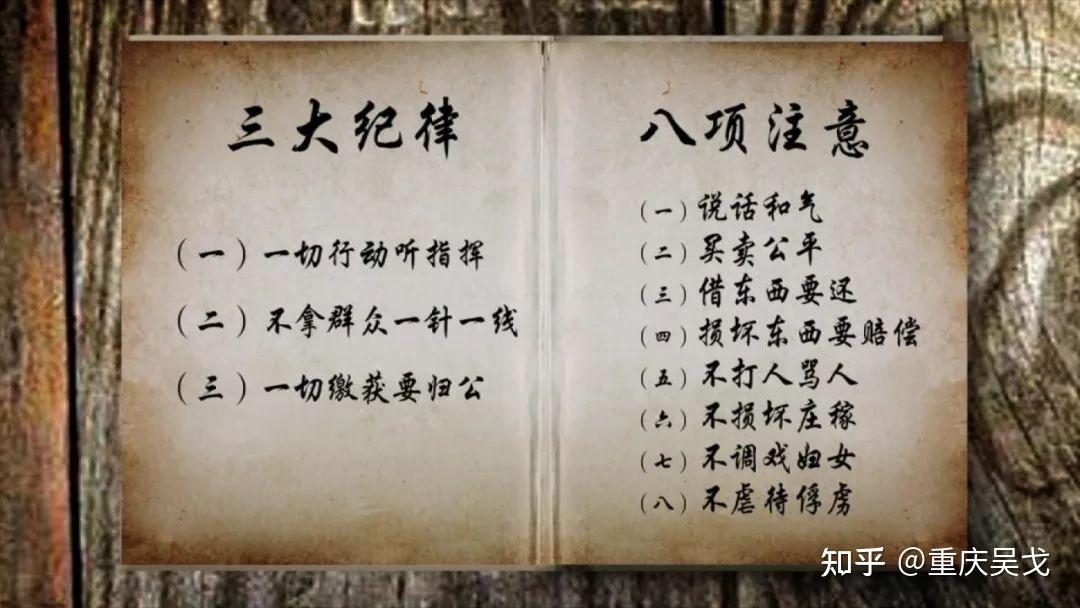 三大纪律
（一）一切行动听指挥
（二）不拿群众一针一线
（三）一切缴获要归公
八项注意
（一）说话和气
（二）买卖公平
（三）借东西要还
（四）损坏东西要赔偿
（五）不打人骂人
（六）不损坏庄稼
（七）不调戏妇女
（八）不虐待俘虏
知乎 @重庆吴戈